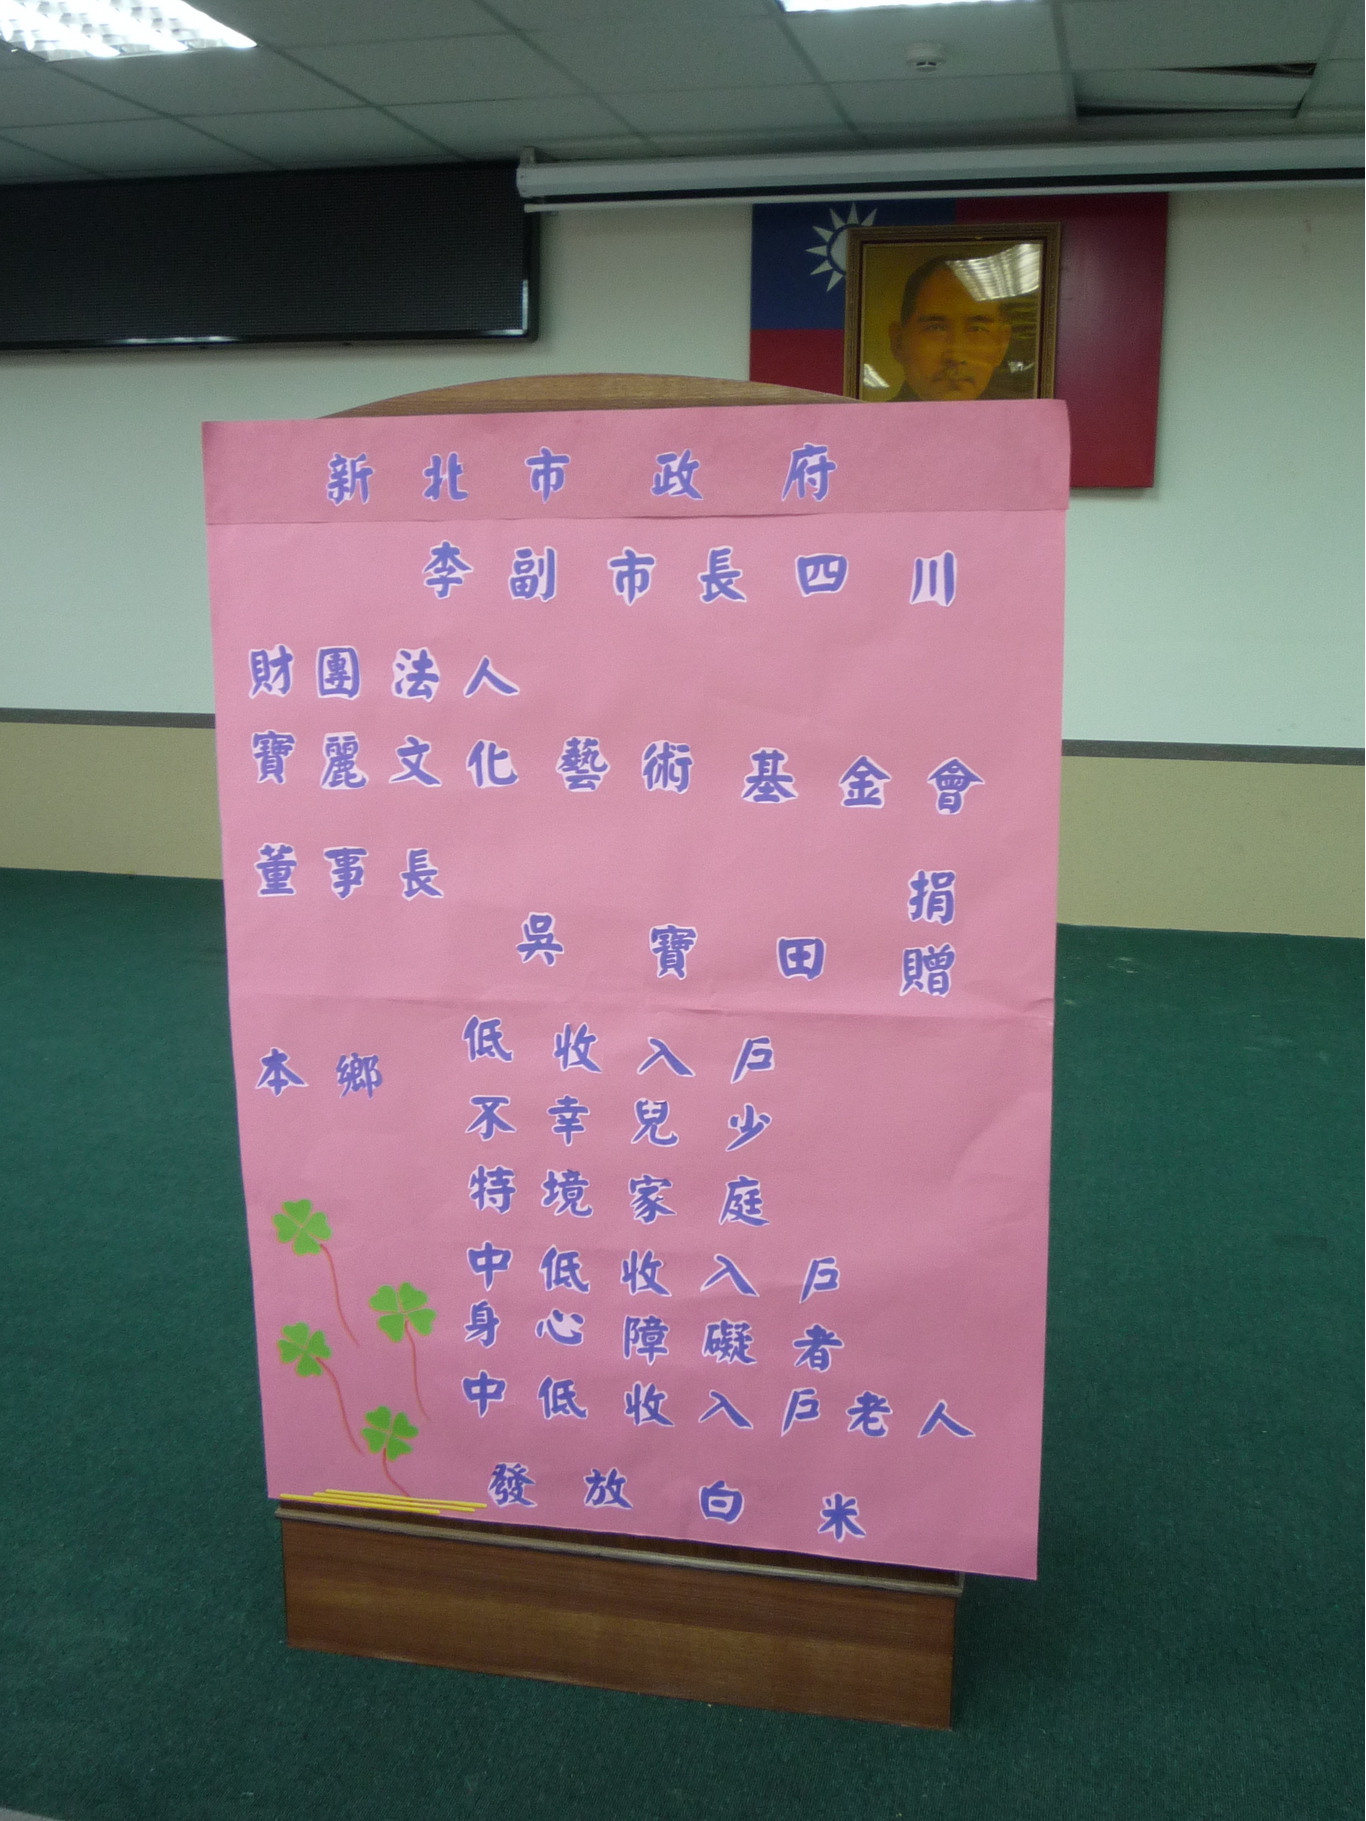 新北市政府
李副市長四川
財團法人
寶麗文化藝術基金會
董事長
吳寶田
捐贈
本鄉
低收入戶
不幸兒少
特境家庭
中低收入戶
身心障礙者
中低收入戶老人
發放白米